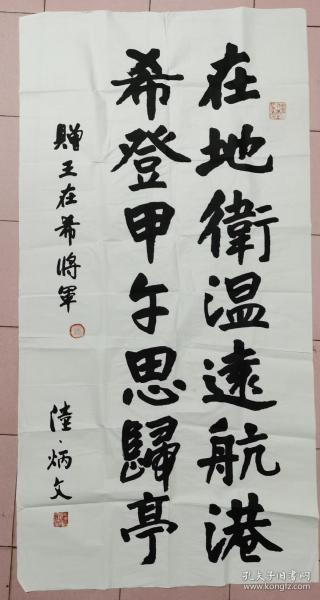 在地衛温遠航港
希登甲午思歸亭
贈王在希將軍
陸·炳文
孔夫子旧书网
www.kongfz.com